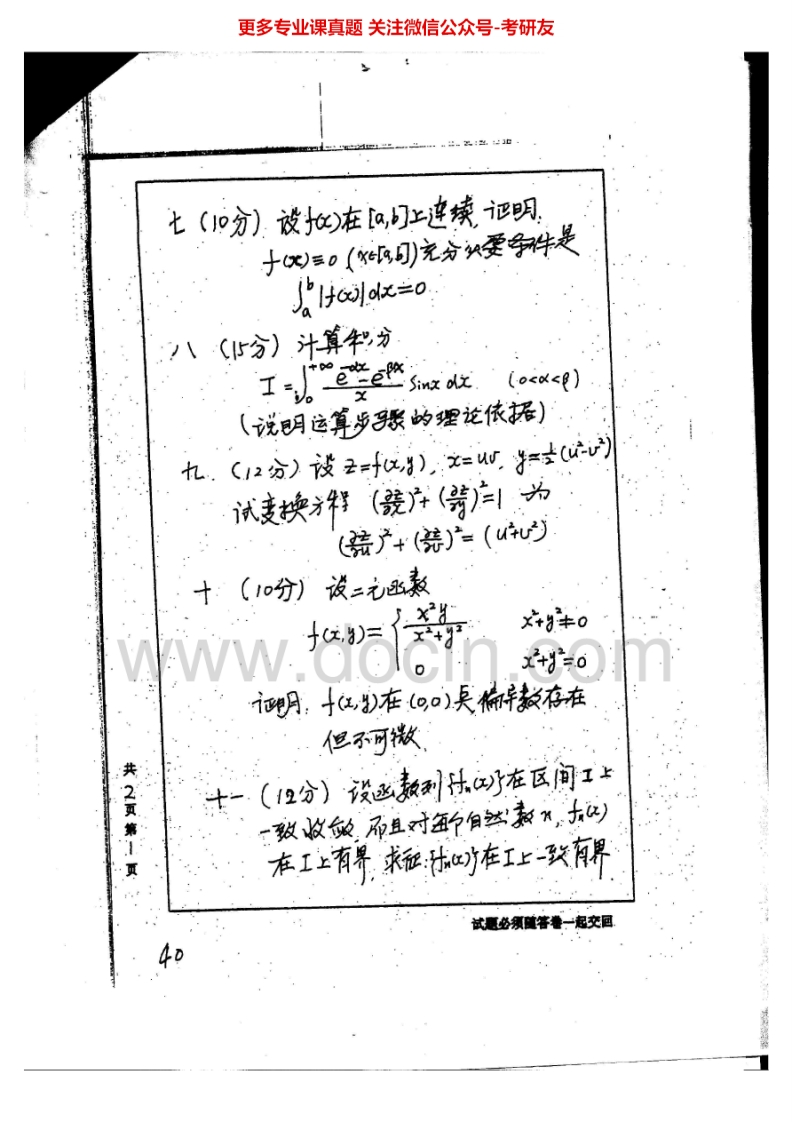 更多专业课真题 关注微信公众号-考研友
七 (10分) 设f(x)在[a,b]上连续,证明.
f(x)≡0 (x∈[a,b])充分必要条件是
∫_a^b |f(x)|dx=0
八 (15分) 计算积分
I=∫_0^{+∞} (e^{-αx}-e^{-βx})/x sinx dx (0<α<β)
(说明运算步骤的理论依据)
九. (12分) 设 z=f(x,y), x=uv, y=1/2(u²-v²)
试变换方程 (∂z/∂x)²+(∂z/∂y)²=1 为
(∂z/∂u)²+(∂z/∂v)²=(u²+v²)
十 (10分) 设二元函数
f(x,y)={ x²y/(x²+y²) x²+y²≠0
0 x²+y²=0
www.docin.com
证明. f(x,y)在(0,0)点偏导数存在
但不可微
十一 (12分) 设函数列{fn(x)}在区间I上
一致收敛,而且对每个自然数n, fn(x)
在I上有界,求证:{fn(x)}在I上一致有界
共2页第1页
试题必须随答卷一起交回
40